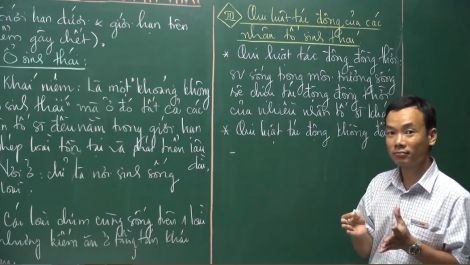 giới hạn dưới & giới hạn trên
điểm gây chết).
Ổ sinh thái:
Khái niệm: Là một "khoảng không
sinh thái" mà ở đó tất cả các
tố st đều nằm trong giới hạn
phép loài tồn tại và phát triển lâu
dài,
Nơi ở: chỉ là nơi sinh sống
loài.
Các loài chim cùng sống trên 1 loài
nhưng kiếm ăn ở tầng tán khác
III Qui luật tác động của các
nhân tố sinh thái:
* Qui luật tác động đồng thời
sv sống trong môi trường sống
sẽ chịu tác động đồng thời
của nhiều nhân tố st khác
* Qui luật tác động không đồ
-